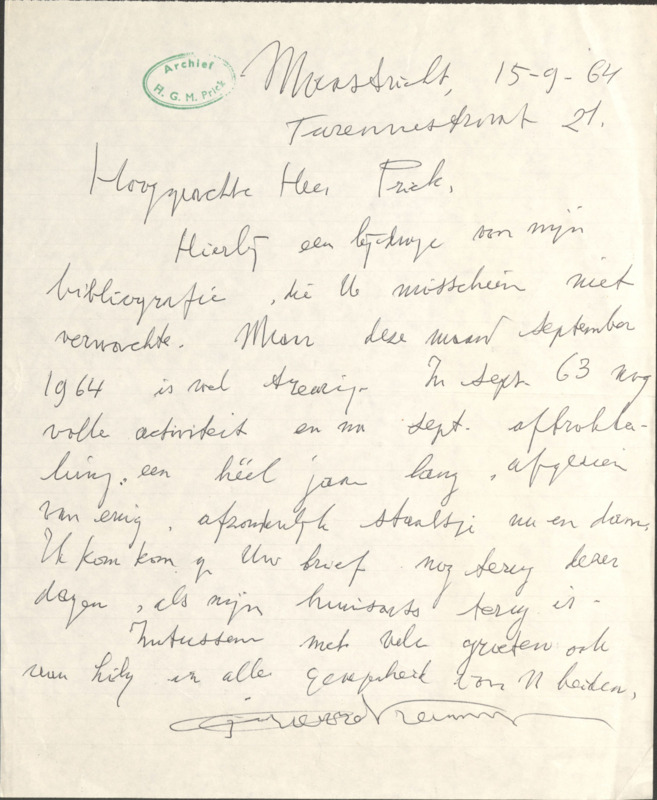 Archief
H. G. M. Prick
Maastricht, 15-9-'64
Turennestraat 21.
Hooggeachte Heer Prick,
Hierbij een bijdrage van mijn
bibliografie, die U misschien niet
verwachtte. Maar deze maand september
1964 is wel treurig. In sept. 63 nog
volle activiteit en nu sept.
een héél jaar lang, afgezien
van enig, afzonderlijk staaltje nu en dan.
Ik kom kom op Uw brief nog terug dezer
dagen, als mijn huisarts terug is.
Intussen met vele groeten ook
van Lily en alle U beiden,